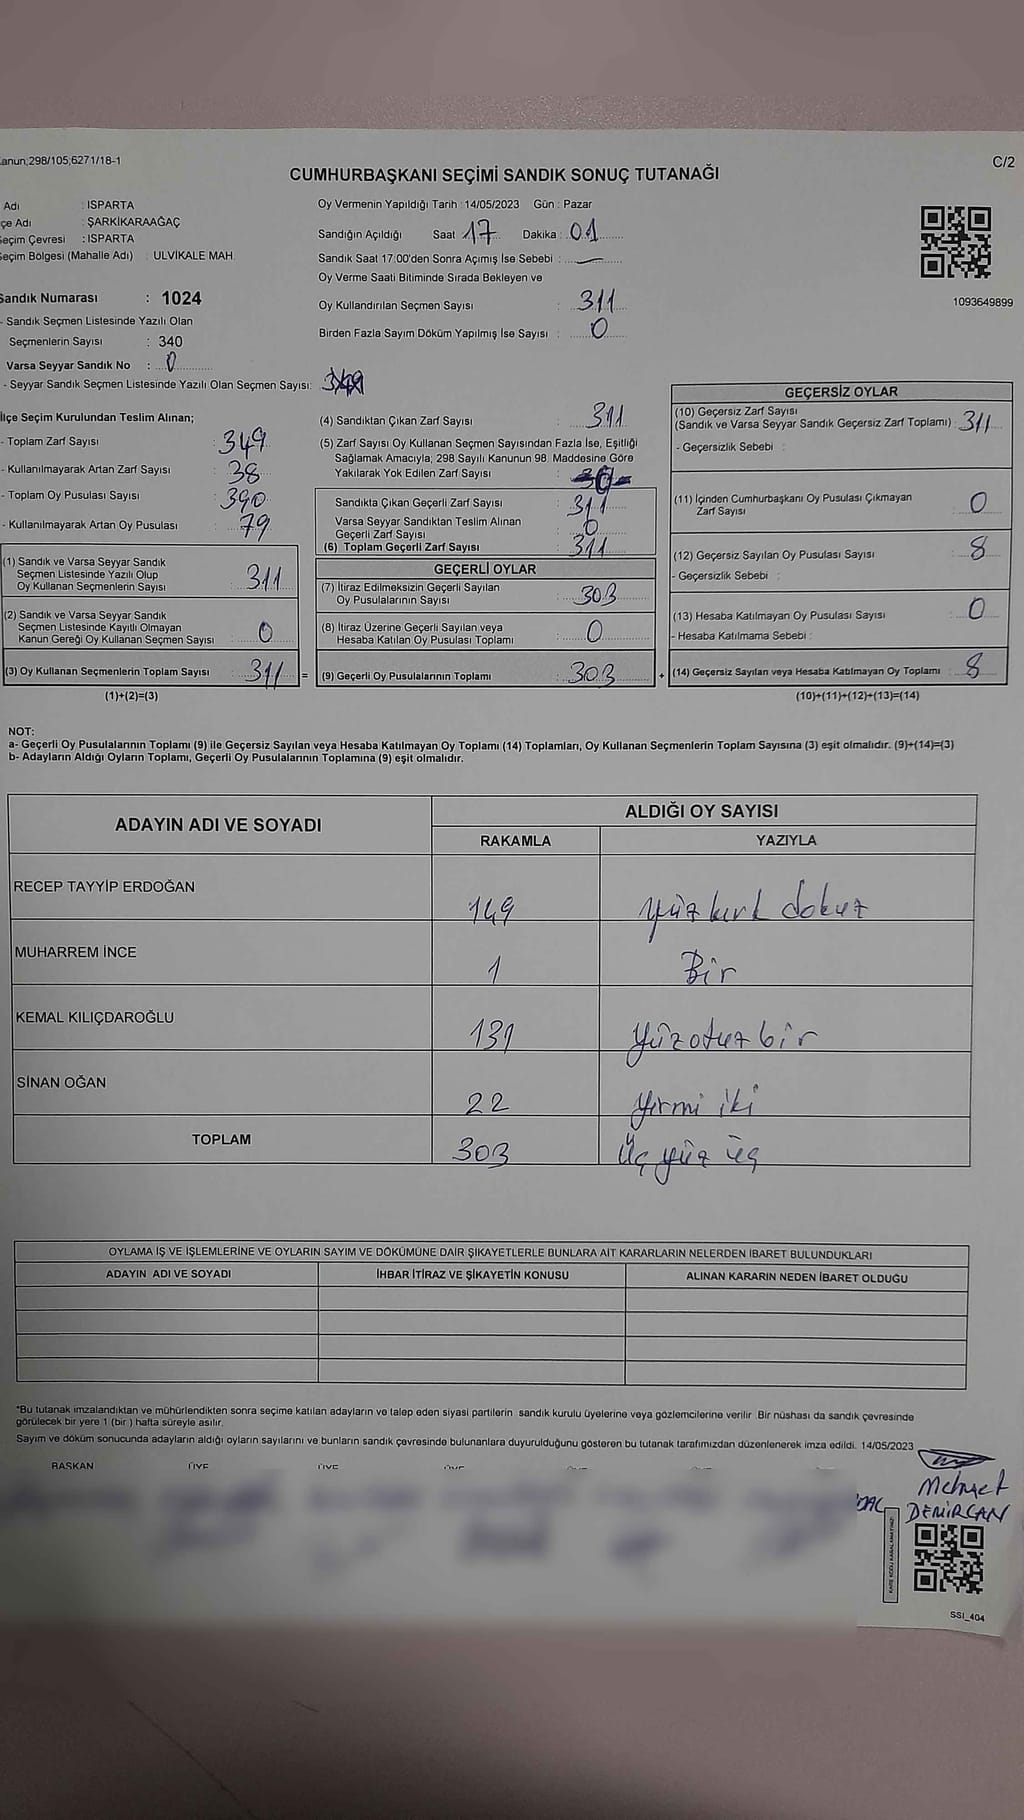 anun;298/105;6271/18-1
C/2
CUMHURBAŞKANI SEÇİMİ SANDIK SONUÇ TUTANAĞI
Adı : ISPARTA
çe Adı : ŞARKİKARAAĞAÇ
eçim Çevresi : ISPARTA
eçim Bölgesi (Mahalle Adı) : ULVİKALE MAH.
Sandık Numarası : 1024
- Sandık Seçmen Listesinde Yazılı Olan
Seçmenlerin Sayısı : 340
Varsa Seyyar Sandık No : 0
- Seyyar Sandık Seçmen Listesinde Yazılı Olan Seçmen Sayısı:
Oy Vermenin Yapıldığı Tarih : 14/05/2023 Gün : Pazar
Sandığın Açıldığı Saat 17 Dakika : 01
Sandık Saat 17:00'den Sonra Açımış İse Sebebi : —
Oy Verme Saati Bitiminde Sırada Bekleyen ve
Oy Kullandırılan Seçmen Sayısı : 311
Birden Fazla Sayım Döküm Yapılmış İse Sayısı : 0
1093649899
İlçe Seçim Kurulundan Teslim Alınan;
- Toplam Zarf Sayısı : 349
- Kullanılmayarak Artan Zarf Sayısı : 38
- Toplam Oy Pusulası Sayısı : 390
- Kullanılmayarak Artan Oy Pusulası : 79
(1) Sandık ve Varsa Seyyar Sandık
Seçmen Listesinde Yazılı Olup
Oy Kullanan Seçmenlerin Sayısı : 311
(2) Sandık ve Varsa Seyyar Sandık
Seçmen Listesinde Kayıtlı Olmayan
Kanun Gereği Oy Kullanan Seçmen Sayısı : 0
(3) Oy Kullanan Seçmenlerin Toplam Sayısı : 311 =
(1)+(2)=(3)
(4) Sandıktan Çıkan Zarf Sayısı : 311
(5) Zarf Sayısı Oy Kullanan Seçmen Sayısından Fazla İse, Eşitliği
Sağlamak Amacıyla; 298 Sayılı Kanunun 98. Maddesine Göre
Yakılarak Yok Edilen Zarf Sayısı : 0
Sandıkta Çıkan Geçerli Zarf Sayısı : 311
Varsa Seyyar Sandıktan Teslim Alınan
Geçerli Zarf Sayısı : 0
(6) Toplam Geçerli Zarf Sayısı : 311
GEÇERLİ OYLAR
(7) İtiraz Edilmeksizin Geçerli Sayılan
Oy Pusulalarının Sayısı : 303
(8) İtiraz Üzerine Geçerli Sayılan veya
Hesaba Katılan Oy Pusulası Toplamı : 0
(9) Geçerli Oy Pusulalarının Toplamı : 303 +
GEÇERSİZ OYLAR
(10) Geçersiz Zarf Sayısı
(Sandık ve Varsa Seyyar Sandık Geçersiz Zarf Toplamı) : 311
- Geçersizlik Sebebi :
(11) İçinden Cumhurbaşkanı Oy Pusulası Çıkmayan
Zarf Sayısı : 0
(12) Geçersiz Sayılan Oy Pusulası Sayısı : 8
- Geçersizlik Sebebi :
(13) Hesaba Katılmayan Oy Pusulası Sayısı : 0
- Hesaba Katılmama Sebebi :
(14) Geçersiz Sayılan veya Hesaba Katılmayan Oy Toplamı : 8
(10)+(11)+(12)+(13)=(14)
NOT:
a- Geçerli Oy Pusulalarının Toplamı (9) ile Geçersiz Sayılan veya Hesaba Katılmayan Oy Toplamı (14) Toplamları, Oy Kullanan Seçmenlerin Toplam Sayısına (3) eşit olmalıdır. (9)+(14)=(3)
b- Adayların Aldığı Oyların Toplamı, Geçerli Oy Pusulalarının Toplamına (9) eşit olmalıdır.
ADAYIN ADI VE SOYADI ALDIĞI OY SAYISI
RAKAMLA YAZIYLA
RECEP TAYYİP ERDOĞAN 149 yüz kırk dokuz
MUHARREM İNCE 1 Bir
KEMAL KILIÇDAROĞLU 131 yüzotuz bir
SİNAN OĞAN 22 yirmi iki
TOPLAM 303 Üç yüz üç
OYLAMA İŞ VE İŞLEMLERİNE VE OYLARIN SAYIM VE DÖKÜMÜNE DAİR ŞİKAYETLERLE BUNLARA AİT KARARLARIN NELERDEN İBARET BULUNDUKLARI
ADAYIN ADI VE SOYADI İHBAR İTİRAZ VE ŞİKAYETİN KONUSU ALINAN KARARIN NEDEN İBARET OLDUĞU
*Bu tutanak imzalandıktan ve mühürlendikten sonra seçime katılan adayların ve talep eden siyasi partilerin sandık kurulu üyelerine veya gözlemcilerine verilir Bir nüshası da sandık çevresinde
görülecek bir yere 1 (bir ) hafta süreyle asılır.
Sayım ve döküm sonucunda adayların aldığı oyların sayılarını ve bunların sandık çevresinde bulunanlara duyurulduğunu gösteren bu tutanak tarafımızdan düzenlenerek imza edildi. 14/05/2023
BAŞKAN ÜYE ÜYE ÜYE ÜYE ÜYE
Mehmet
DEMİRCAN
SSI_404